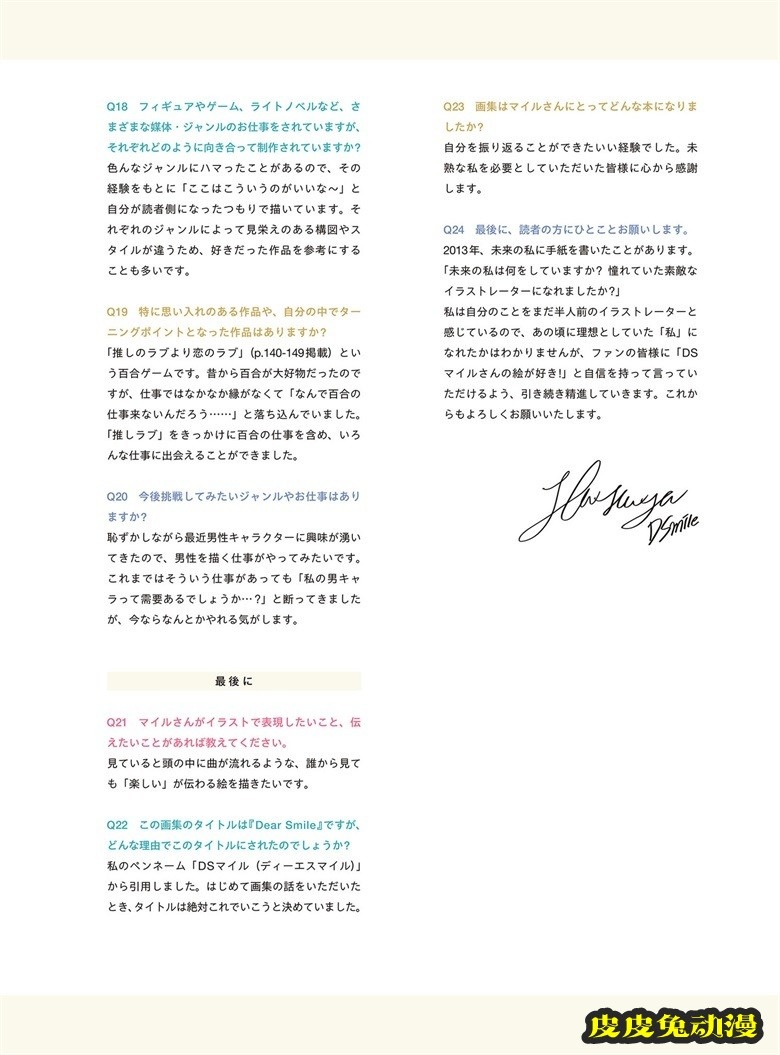 Q18　フィギュアやゲーム、ライトノベルなど、さ
まざまな媒体・ジャンルのお仕事をされていますが、
それぞれどのように向き合って制作されていますか?
色んなジャンルにハマったことがあるので、その
経験をもとに「ここはこういうのがいいな〜」と
自分が読者側になったつもりで描いています。そ
れぞれのジャンルによって見栄えのある構図やス
タイルが違うため、好きだった作品を参考にする
ことも多いです。
Q19　特に思い入れのある作品や、自分の中でター
ニングポイントとなった作品はありますか?
「推しのラブより恋のラブ」（p.140-149掲載）とい
う百合ゲームです。昔から百合が大好物だったので
すが、仕事ではなかなか縁がなくて「なんで百合の
仕事来ないんだろう……」と落ち込んでいました。
「推しラブ」をきっかけに百合の仕事を含め、いろ
んな仕事に出会えることができました。
Q20　今後挑戦してみたいジャンルやお仕事はあり
ますか?
恥ずかしながら最近男性キャラクターに興味が湧い
てきたので、男性を描く仕事がやってみたいです。
これまではそういう仕事があっても「私の男キャ
ラって需要あるでしょうか…?」と断ってきました
が、今ならなんとかやれる気がします。
最後に
Q21　マイルさんがイラストで表現したいこと、伝
えたいことがあれば教えてください。
見ていると頭の中に曲が流れるような、誰から見て
も「楽しい」が伝わる絵を描きたいです。
Q22　この画集のタイトルは『Dear Smile』ですが、
どんな理由でこのタイトルにされたのでしょうか?
私のペンネーム「DSマイル（ディーエスマイル）」
から引用しました。はじめて画集の話をいただいた
とき、タイトルは絶対これでいこうと決めていました。
Q23　画集はマイルさんにとってどんな本になりま
したか?
自分を振り返ることができたいい経験でした。未
熟な私を必要としていただいた皆様に心から感謝
します。
Q24　最後に、読者の方にひとことお願いします。
2013年、未来の私に手紙を書いたことがあります。
「未来の私は何をしていますか? 憧れていた素敵な
イラストレーターになれましたか?」
私は自分のことをまだ半人前のイラストレーターと
感じているので、あの頃に理想としていた「私」に
なれたかはわかりませんが、ファンの皆様に「DS
マイルさんの絵が好き!」と自信を持って言ってい
ただけるよう、引き続き精進していきます。これか
らもよろしくお願いいたします。
DSmile
皮皮兔动漫